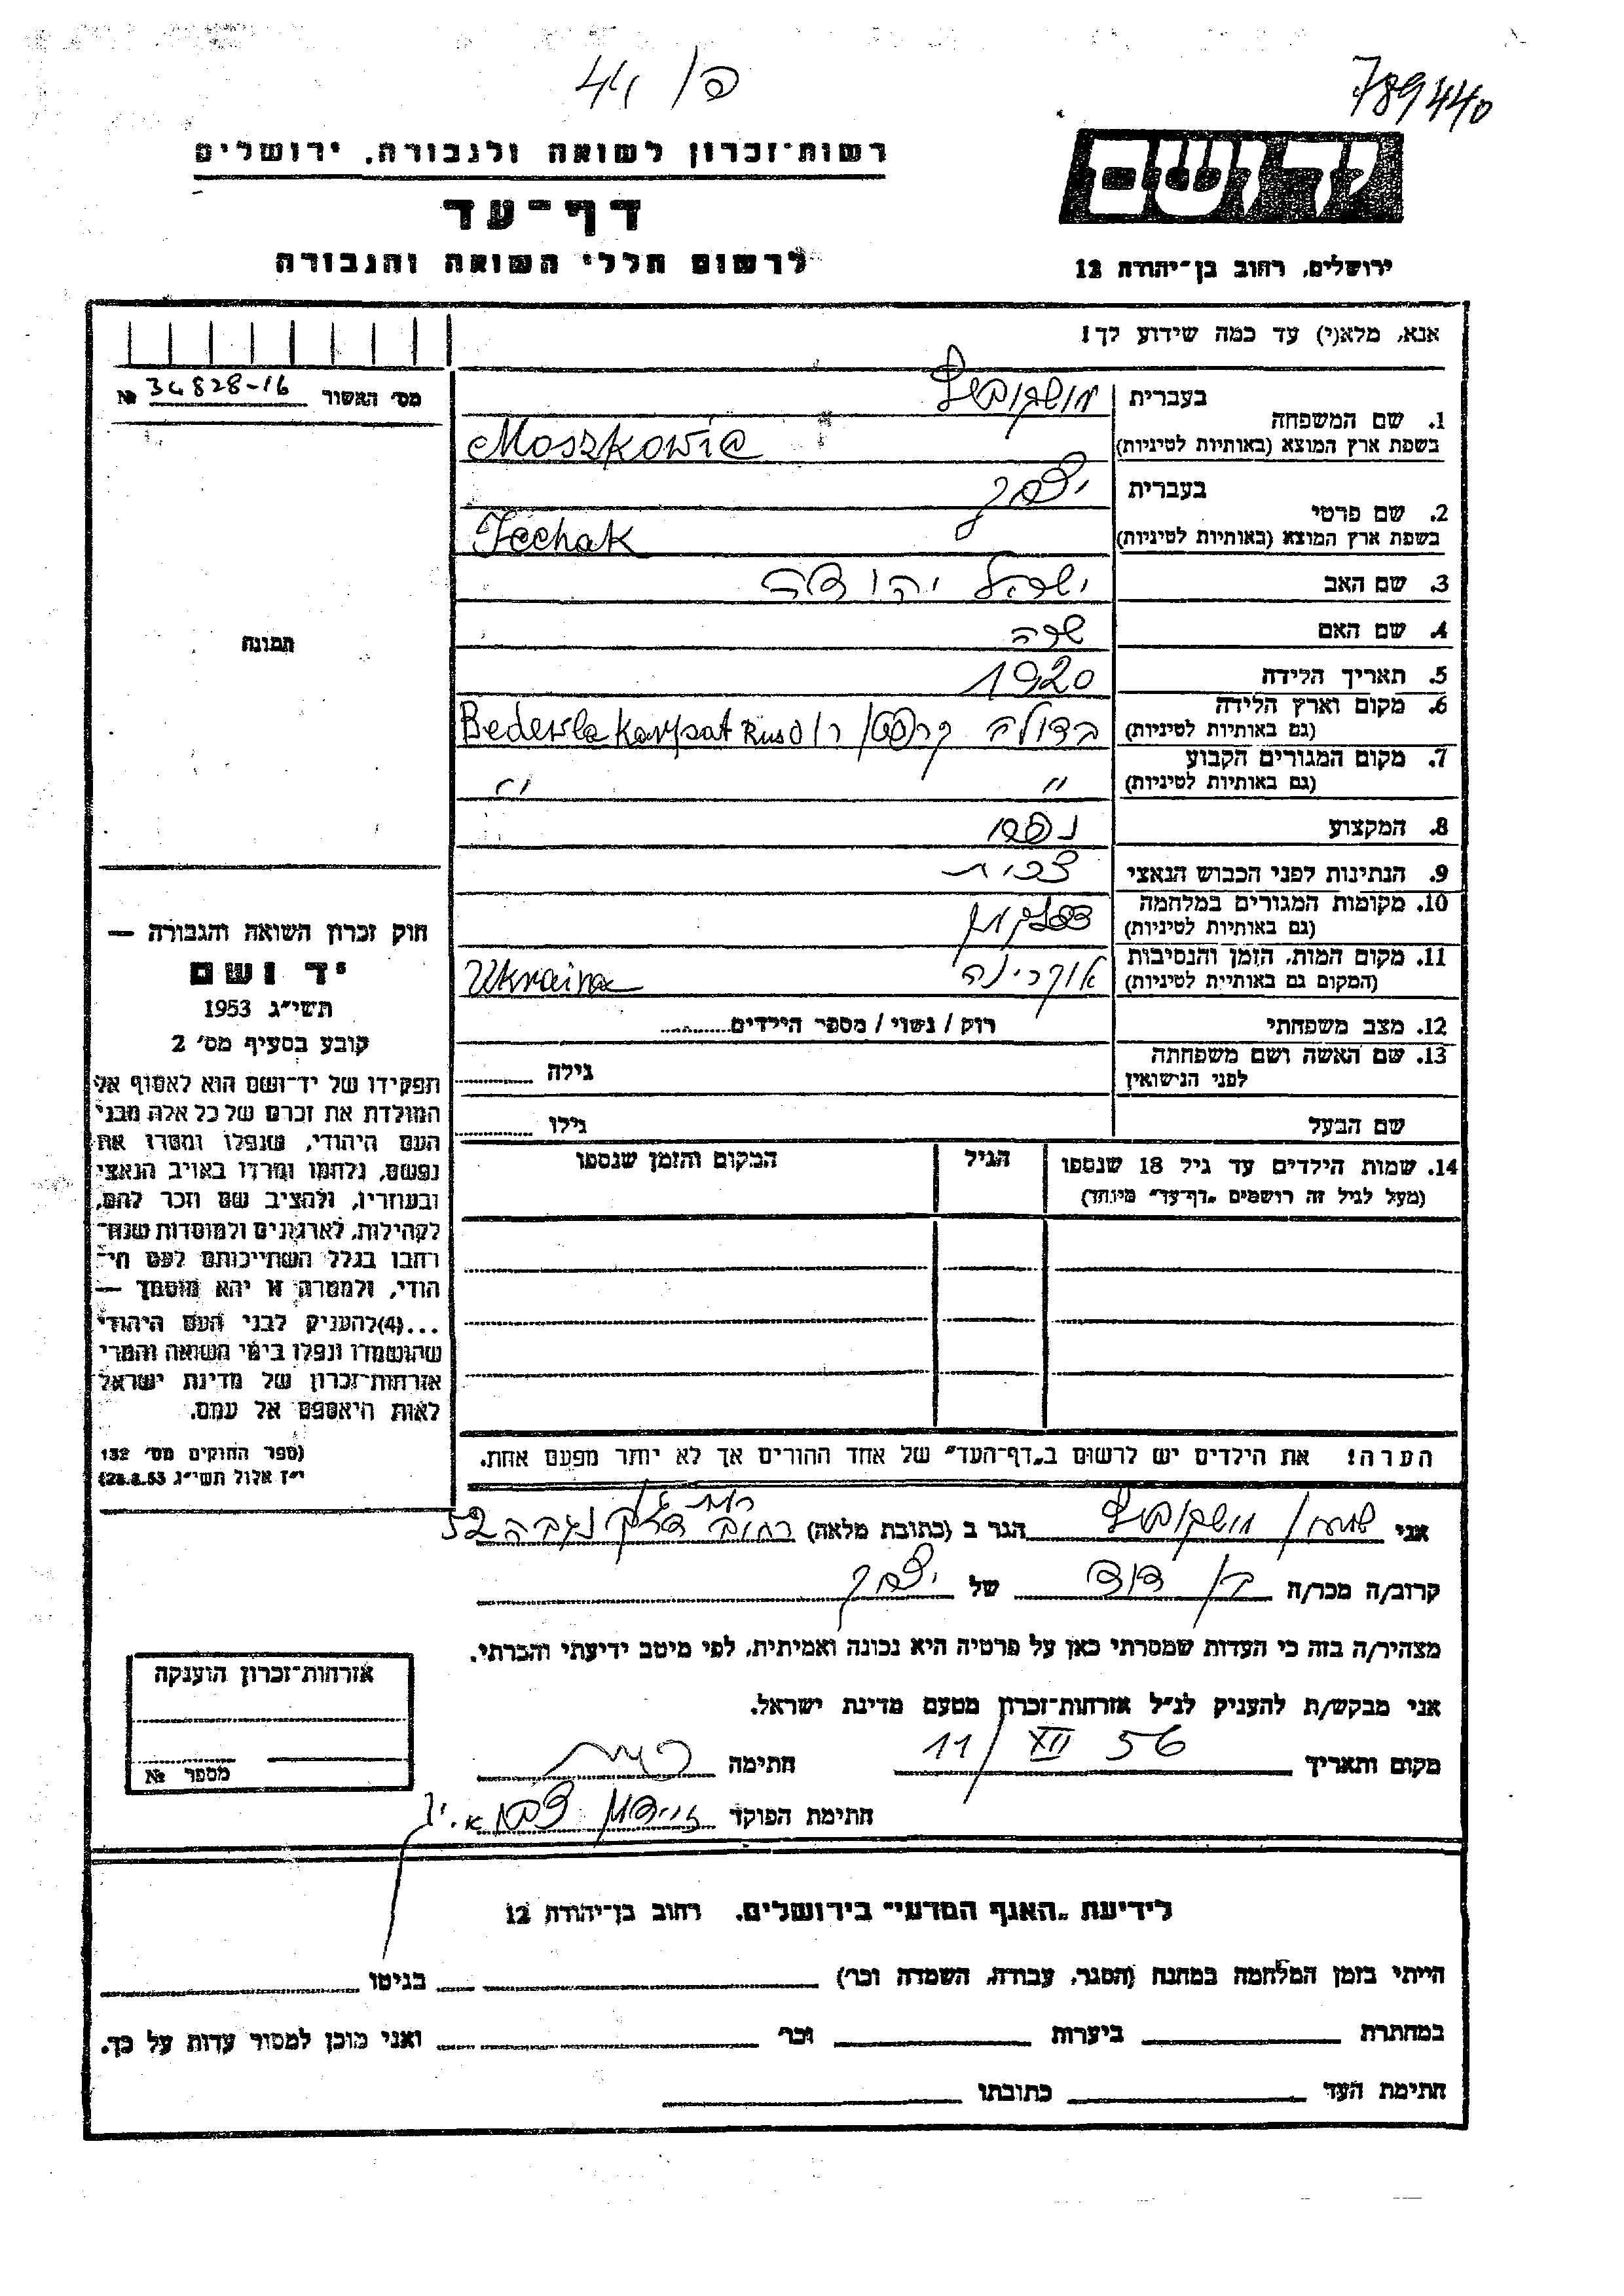 789440
פ/ 44
יד ושם
ירושלים, רחוב בן־יהודה 12
רשות־זכרון לשואה ולגבורה, ירושלים
דף־עד
לרשום חללי השואה והגבורה
אנא, מלא(י) עד כמה שידוע לך!
מס' האשור 34828-16 №
תמונה
1. שם המשפחה
בעברית מושקוביץ
בשפת ארץ המוצא (באותיות לטיניות) Moszkowic
2. שם פרטי
בעברית יצחק
בשפת ארץ המוצא (באותיות לטיניות) Icchak
3. שם האב ישראל יהודה
4. שם האם שרה
5. תאריך הלידה 1920
6. מקום וארץ הלידה
(גם באותיות לטיניות) בדולה קרפטו רוס Bedewla Karpat Rus
7. מקום המגורים הקבוע
(גם באותיות לטיניות) " "
8. המקצוע
9. הנתינות לפני הכבוש הנאצי צכית
10. מקומות המגורים במלחמה
(גם באותיות לטיניות)
11. מקום המות, הזמן והנסיבות
(המקום גם באותיות לטיניות) אוקרינה Ukraina
12. מצב משפחתי רוק / נשוי / מספר הילדים
13. שם האשה ושם משפחתה
לפני הנישואין גילה
שם הבעל גילו
14. שמות הילדים עד גיל 18 שנספו הגיל המקום והזמן שנספו
(מעל לגיל זה רושמים „דף־עד" מיוחד)
הערה! את הילדים יש לרשום ב„דף־העד" של אחד ההורים אך לא יותר מפעם אחת.
חוק זכרון השואה והגבורה —
יד ושם
תשי"ג 1953
קובע בסעיף מס' 2
תפקידו של יד־ושם הוא לאסוף אל
המולדת את זכרם של כל אלה מבני
העם היהודי, שנפלו ומסרו את
נפשם, נלחמו ומרדו באויב הנאצי
ובעוזריו, ולהציב שם וזכר להם,
לקהילות, לארגונים ולמוסדות שנח־
רבו בגלל השתייכותם לעם הי־
הודי, ולמטרה זו יהא מוסמך —
...(4)להעניק לבני העם היהודי
שהושמדו ונפלו בימי השואה והמרי
אזרחות־זכרון של מדינת ישראל
לאות היאספם אל עמם.
(ספר החוקים מס' 132
י"ז אלול תשי"ג 28.8.53)
אני שמעון מושקוביץ הגר ב (כתובת מלאה) רמת גן רחוב דרך נגבה 52
קרוב/ה מכר/ה בן דוד של יצחק
מצהיר/ה בזה כי העדות שמסרתי כאן על פרטיה היא נכונה ואמיתית, לפי מיטב ידיעתי והכרתי.
אני מבקש/ת להעניק לנ"ל אזרחות־זכרון מטעם מדינת ישראל.
מקום ותאריך 11/ XII 56 חתימה
חתימת הפוקד
אזרחות־זכרון הוענקה
מספר №
לידיעת „האגף המדעי" בירושלים, רחוב בן־יהודה 12
הייתי בזמן המלחמה במחנה (הסגר, עבודה, השמדה וכו') בגיטו
במחתרת ביערות וכו' ואני מוכן למסור עדות על כך.
חתימת העד כתובתו